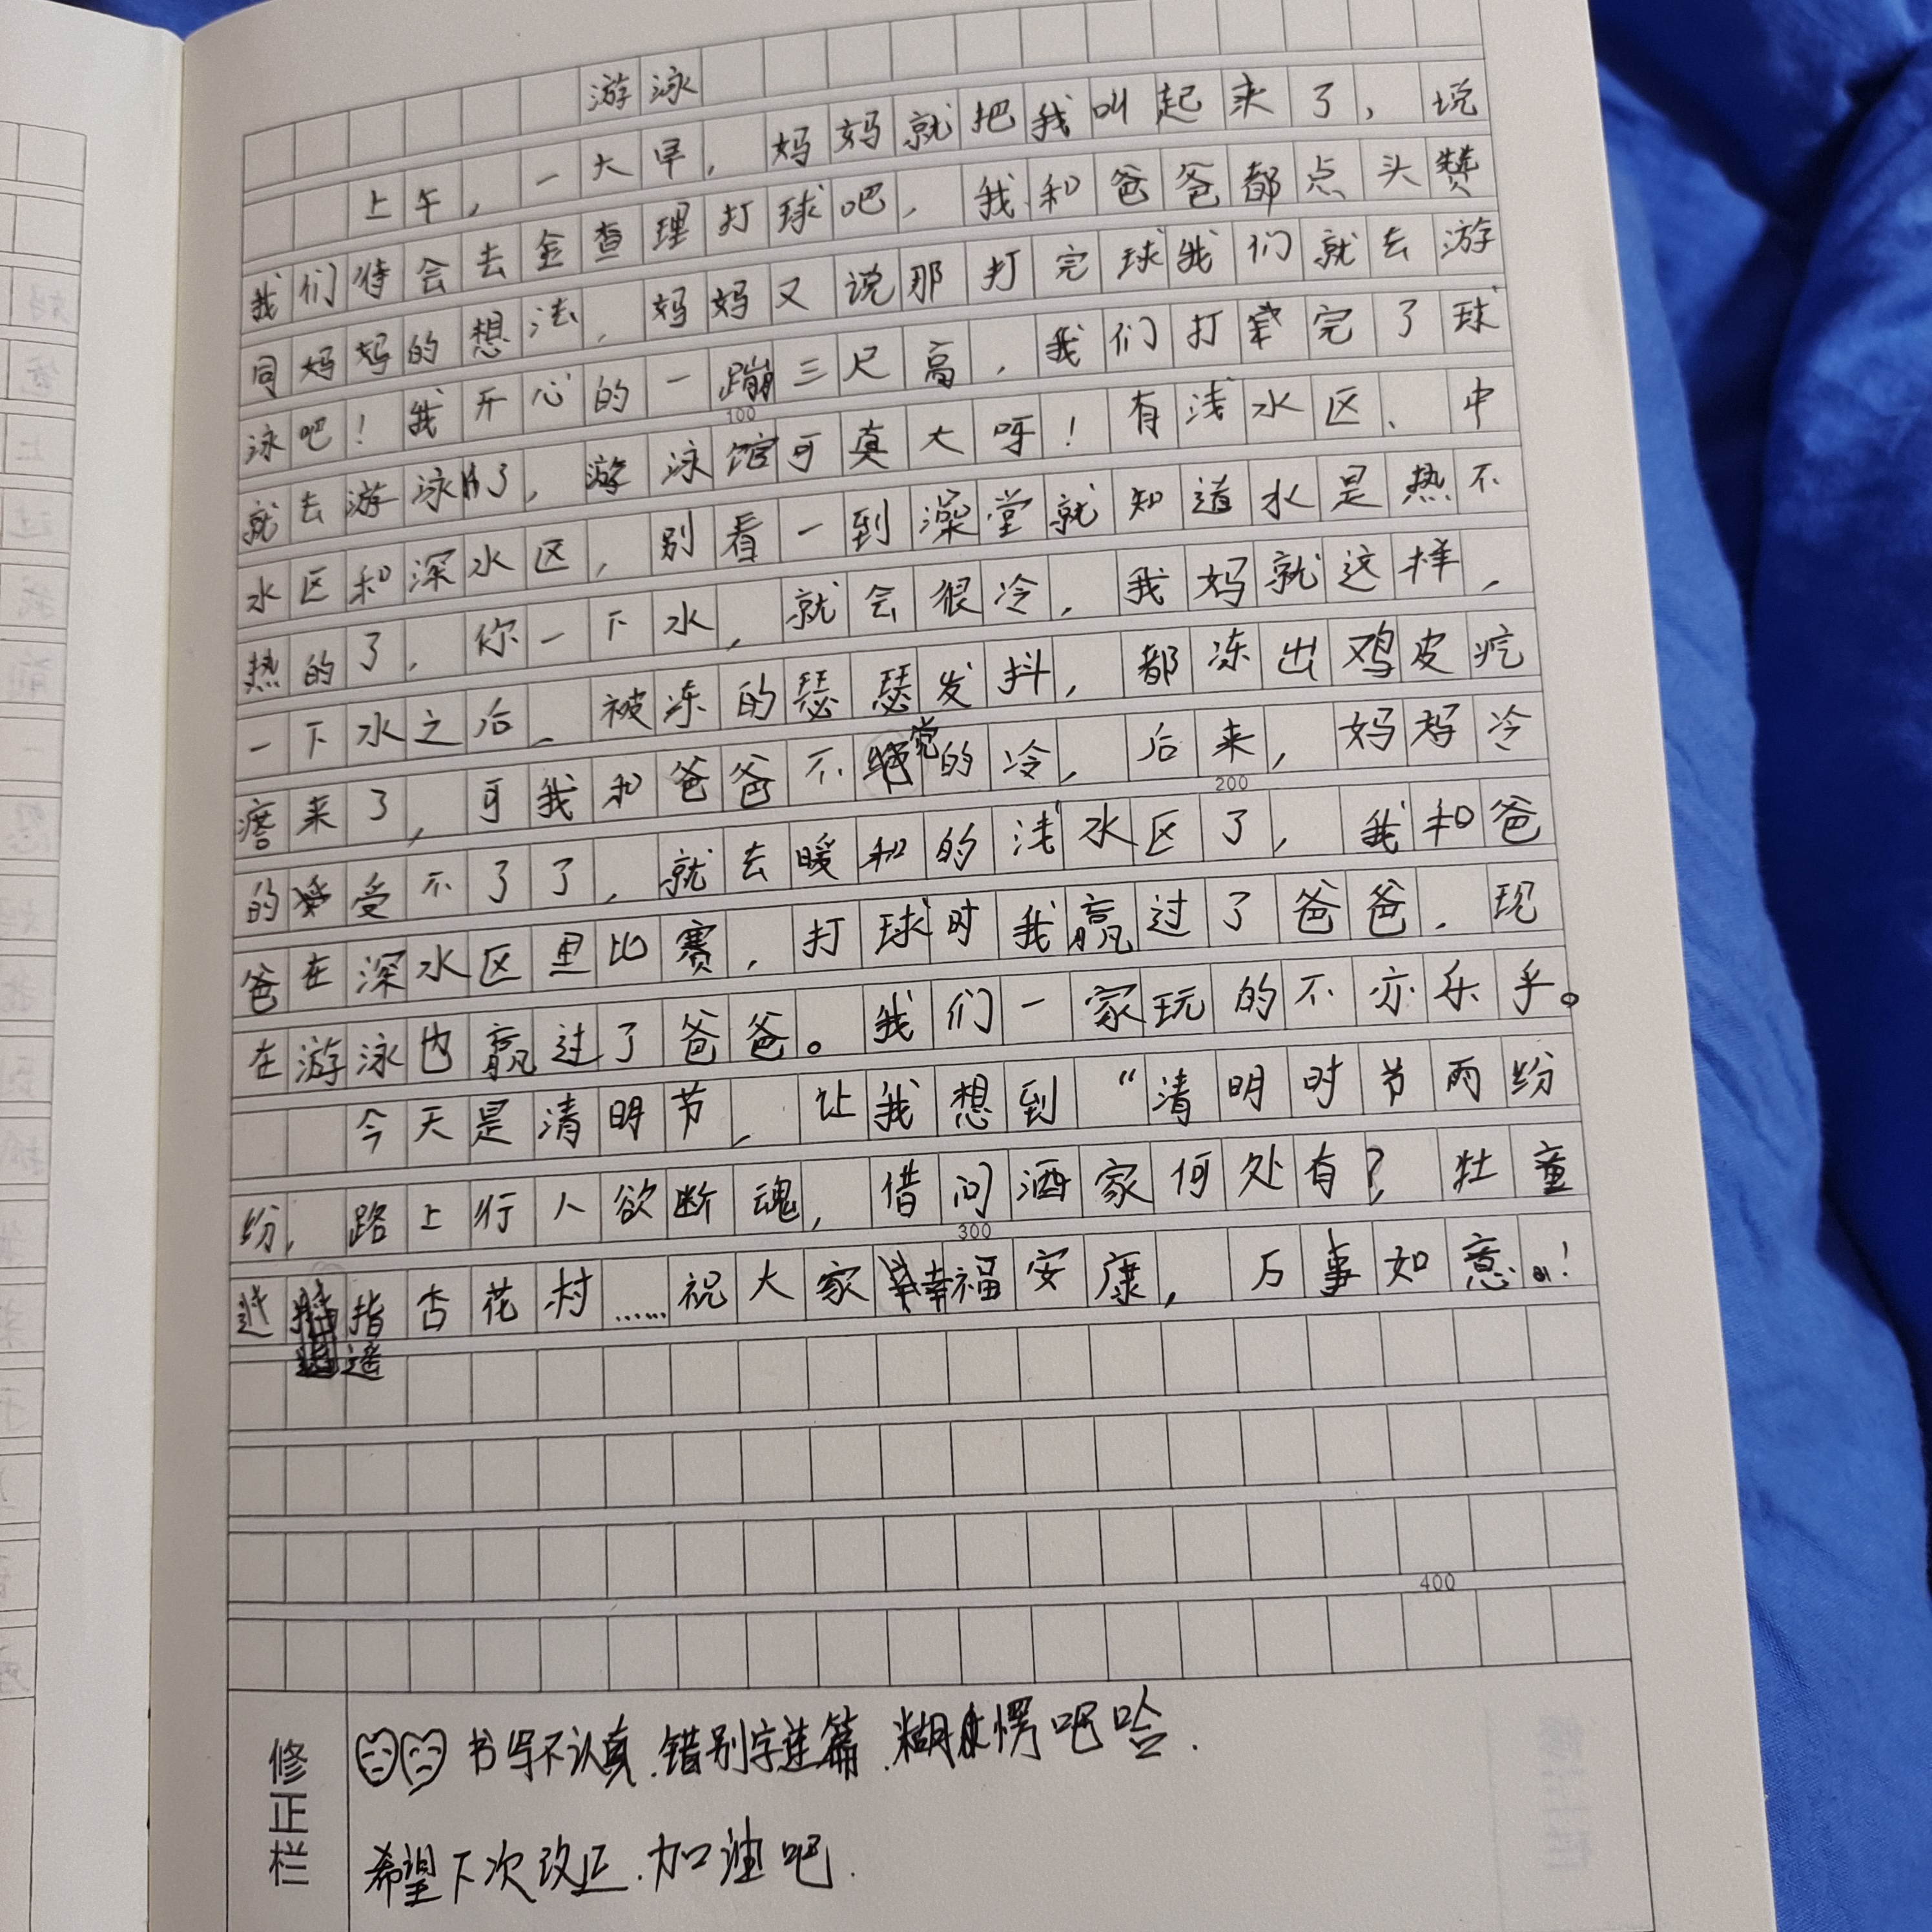 游泳
上午,一大早,妈妈就把我叫起来了,说
我们待会去金查理打球吧,我和爸爸都点头赞
同妈妈的想法,妈妈又说那打完球我们就去游
泳吧!我开心的一蹦三尺高,我们打完了球
就去游泳了,游泳馆可真大呀!有浅水区、中
水区和深水区,别看一到澡堂就知道水是热不
热的了,你一下水,就会很冷,我妈就这样,
一下水之后、被冻的瑟瑟发抖,都冻出鸡皮疙
瘩来了,可我和爸爸不觉的冷,后来,妈妈冷
的受不了了,就去暖和的浅水区了,我和爸
100
200
爸在深水区里比赛,打球时我赢过了爸爸.现
在游泳也赢过了爸爸。我们一家玩的不亦乐乎。
今天是清明节,让我想到“清明时节雨纷
纷,路上行人欲断魂,借问酒家何处有?牡童
300
指杏花村……祝大家幸福安康,万事如意!
遥
400
修正栏
书写不认真.错别字连篇.糊愣吧哈.
希望下次改正.加油吧.